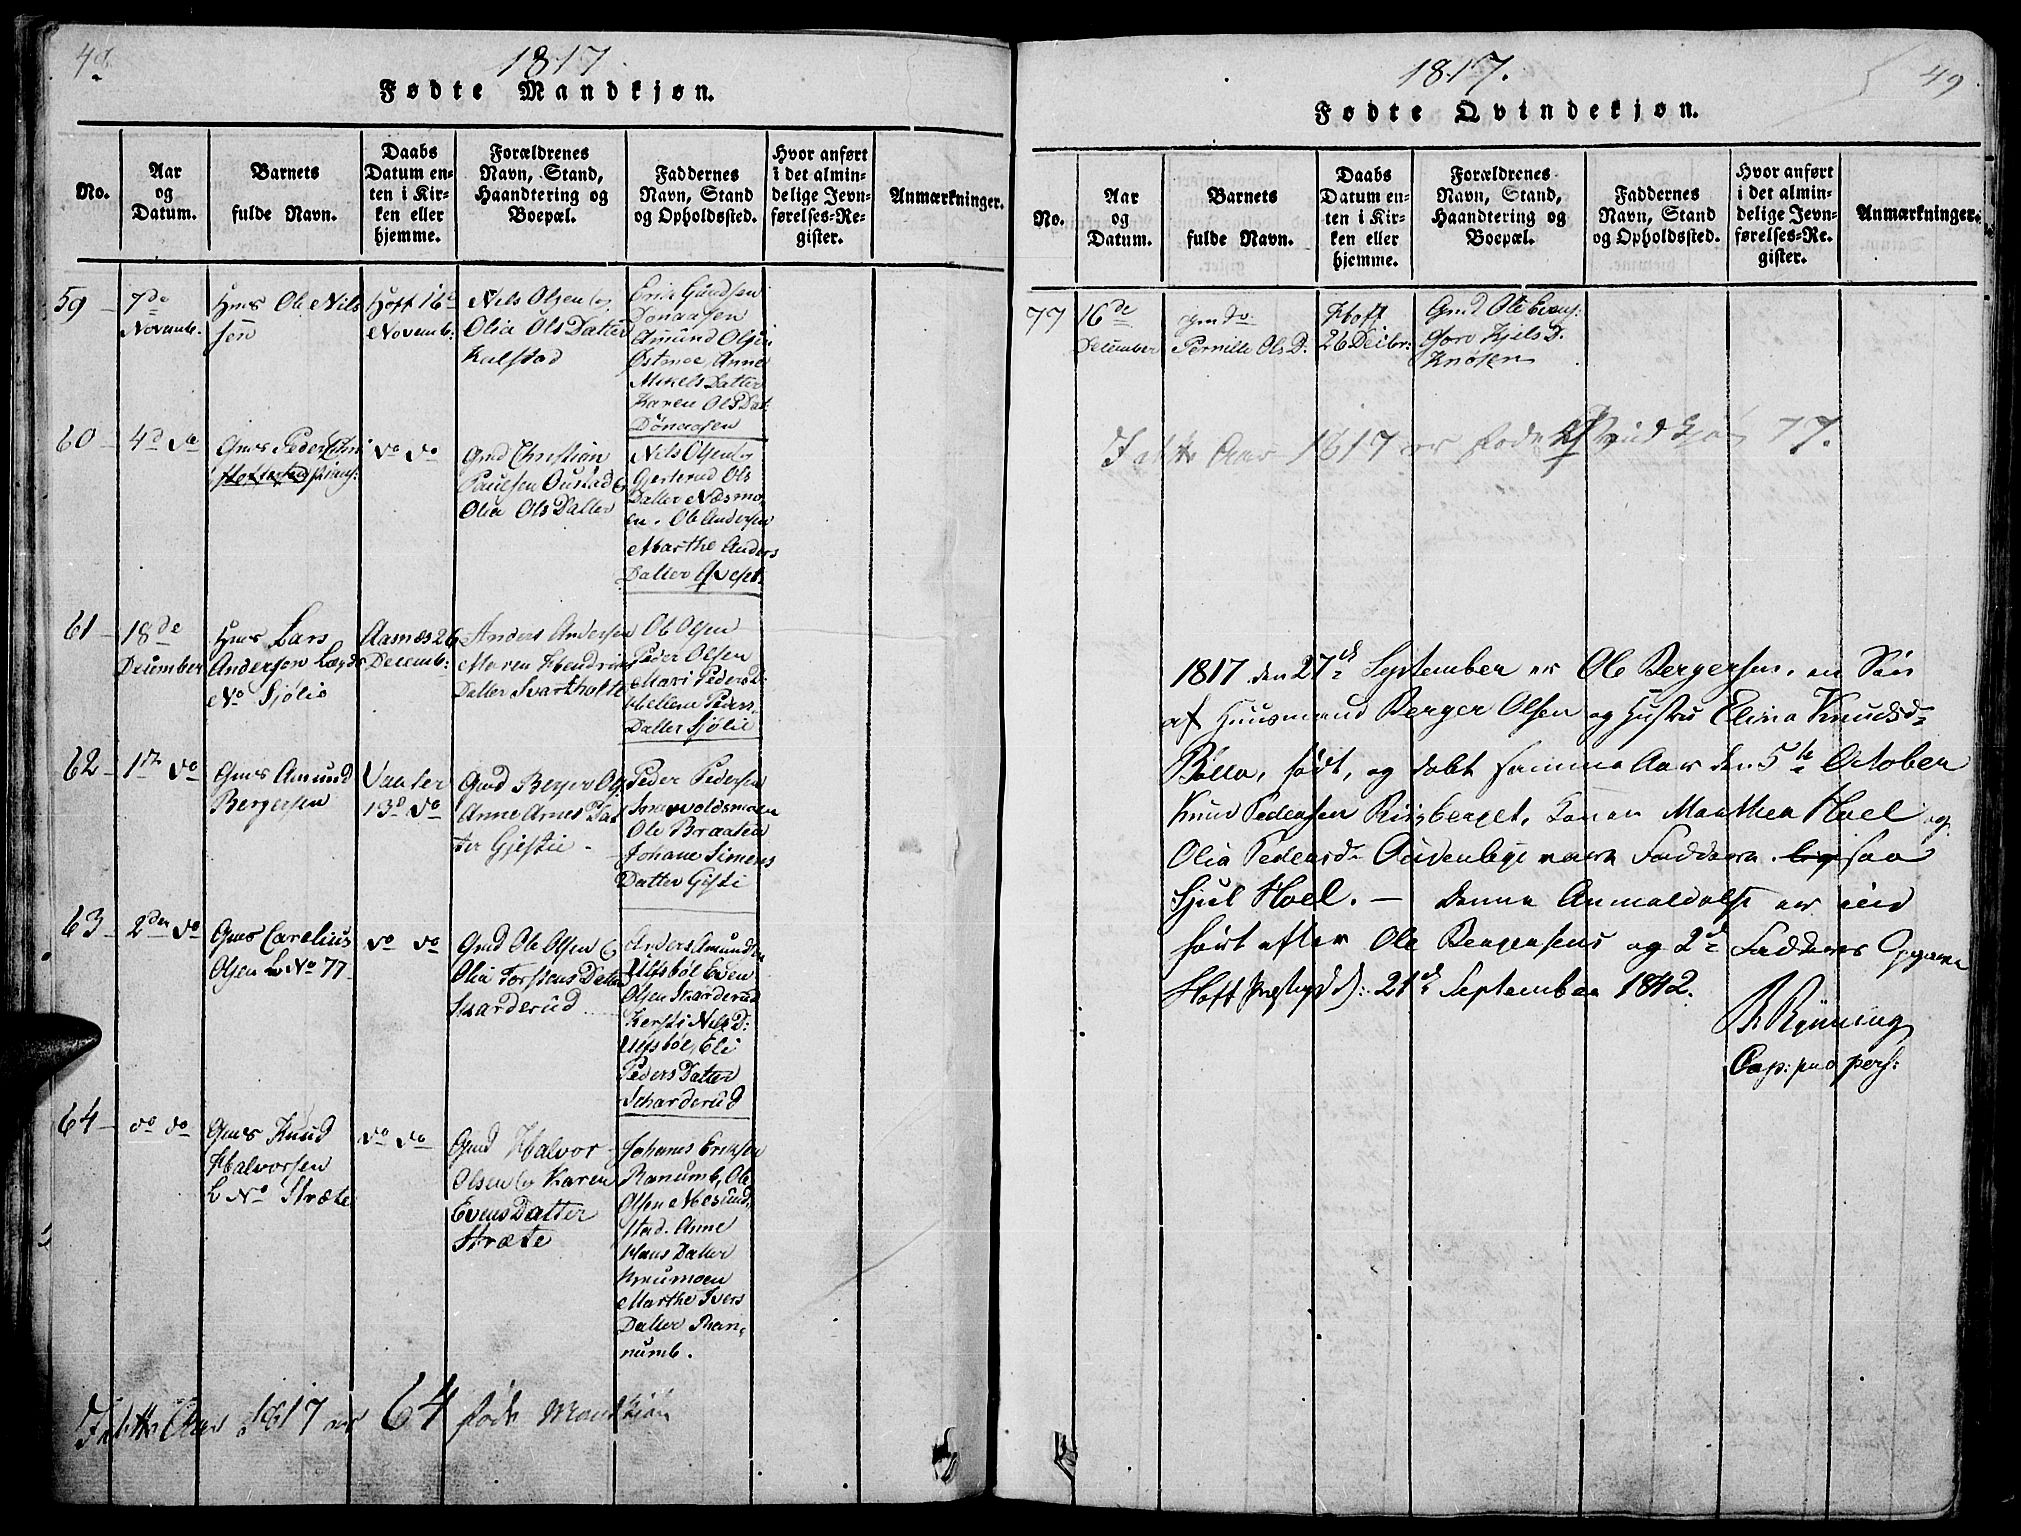 48.
1817.
Fødte Mandkjøn.
No.
Aar
og
Datum.
Barnets
fulde Navn.
Daabs
Datum en-
ten i Kir-
ken eller
hjemme.
Forældrenes
Navn, Stand,
Haandtering og
Boepæl.
Faddernes
Navn, Stand
og Opholdssted.
Hvor anført
i det almin-
delige Jevn-
førelses-Re-
gister.
Anmærkninger.
59
7de
Novemb.
Hms Ole Nils
sen
Hoff 16de
Novemb:
Nils Olsen og
Olia Ols Datter
Kalstad
Erik Gundsen
Dønaasen
Amund Olsen
Østmoe Anne
Mikels Datter
Karen Ols Dat
Dönaasen
60
4d do
Gms Peder Chri
do do
Gmd Christian
Paulsen Oustad &
Olia Ols Datter
Nils Olsen og
Gjertrud Ols
Datter Næsmo-
en. Ole Andersen
Marthe Anders
Datter Qvest.
61
18de
December
Hms Lars
Andersen Lægds
No Sjølie
Aasnæs 26
Decemb:
Anders Andersen
Maren Hendrics
Datter Svartholte
Ole Olsen
Peder Olsen
Mari Peders D:
Hellene Peders
Datter Sjølie
62
1ste do
Gms Amund
Bergersen
Vaaler
13d do
Gmd Berger Ols
Anne Arnes Dat
ter Gjestie
Peder Pedersen
Ole Braaten
Johane Simens
Datter Gisti
63
2den do
Gms Carelius
Olsen L No 77
do do
Gmd Ole Olsen &
Olia Torstens Datter
Skarderud
Anders Amundsen
Ulfsböl Even
Olsen Skarderud
Kersti Nils D:
Ulfsböl, Eli
Peders Datter
Scharderud
64
do do
Gms Knud
Halvorsen
L No Stræte
do do
Gmd Halvor
Olsen og Karen
Evens Datter
Stræte
Johanes Eriksen
Ranumb, Ole
Olsen Mosund
stad. Anne
Hans Datter
Knumoen
Marthe Ivers
Datter Ran,
numb.
I dette Aar 1817 er 64 fødte Mandkjön
49
1817.
Fødte Qvindekjøn.
No.
Aar
og
Datum.
Barnets
fulde Navn.
Daabs
Datum en-
ten i Kir-
ken eller
hjemme.
Forældrenes
Navn, Stand,
Haandtering og
Boepæl.
Faddernes
Navn, Stand
og Opholdssted.
Hvor anført
i det almin-
delige Jevn-
førelses-Re-
gister.
Anmærkninger.
77
16de
December
Pernille Ols D:
Hoff
26 Decbr:
Gmd Ole Evens:
Gore Kjels D.
Knøsen
I dette Aar 1817 er fødte Qvindkjön 77.
1817 den 27de September er Ole Bergersen, en Sön
af Huusmand Berger Olsen og Hustru Elina Knudsd
Bölla, födt, og döbt samme Aar den 5te October
Knud Pedersen Risberget, Karen Marthea Hoel og
Olia Pedersd Audenbye vare Faddere. ligesaa
Sjul Hoel. — Denne Anmeldelse er ind
fört efter Ole Bergersens og 2de Fadderes Opgave
Hoff Præstegd d: 21de September 1842.
B Rynning
Cap: pro pers: